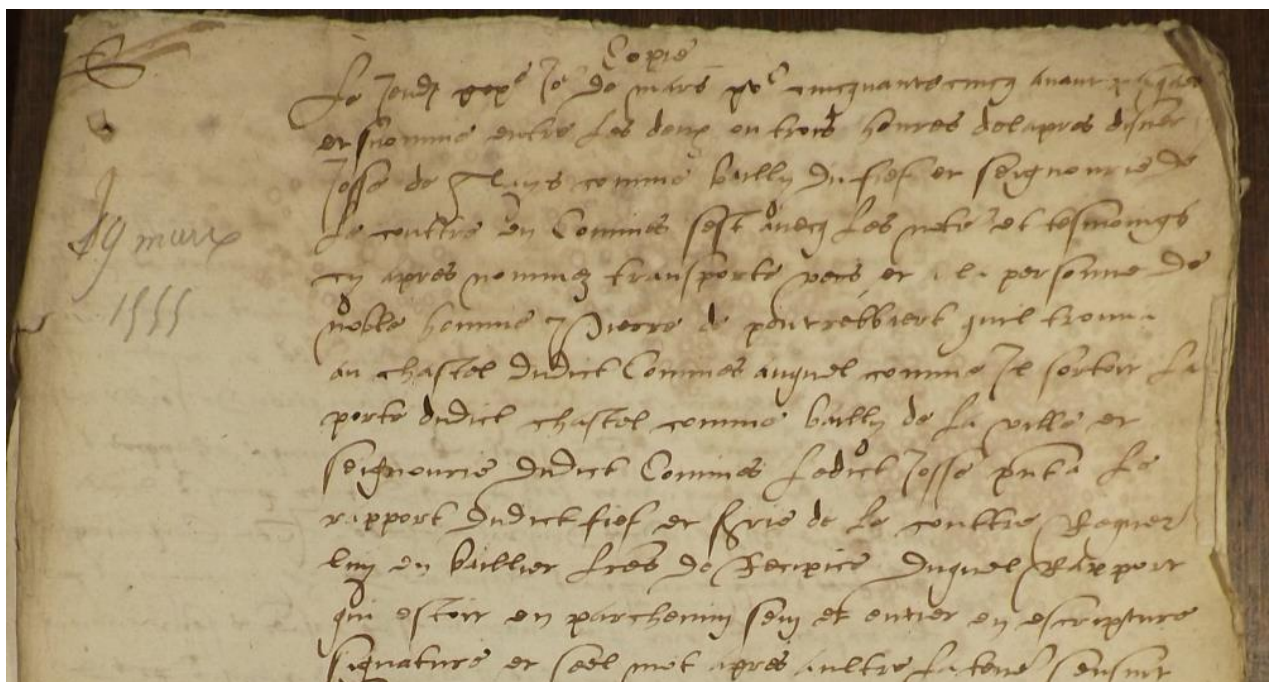 Copie
Le Jeudi Jo.e de mars xv.c cincquante cincq avant pasques
et environ entre les deux ou trois heures de lapres disner
Josse de comme bailly du fief et seignourie de
Le couttre en Comines sest avecq les notre et tesmoings
cy apres nommez transporte vers et a la personne de
noble homme Pierre de quil trouva
au chastel dudict Comines auquel comme Il sortoit la
porte dudict chastel comme bailly de la ville et
seignourie dudict Comines ledict Josse pnta le
rapport dudict fief et Srie de le couttre Requer
luy en baillier lres de Recipice duquel Rapport
qui estoit en parchemin sein et entier en escripture
signature et seel mot apres aultre la tene sensuit
19 mars
1555